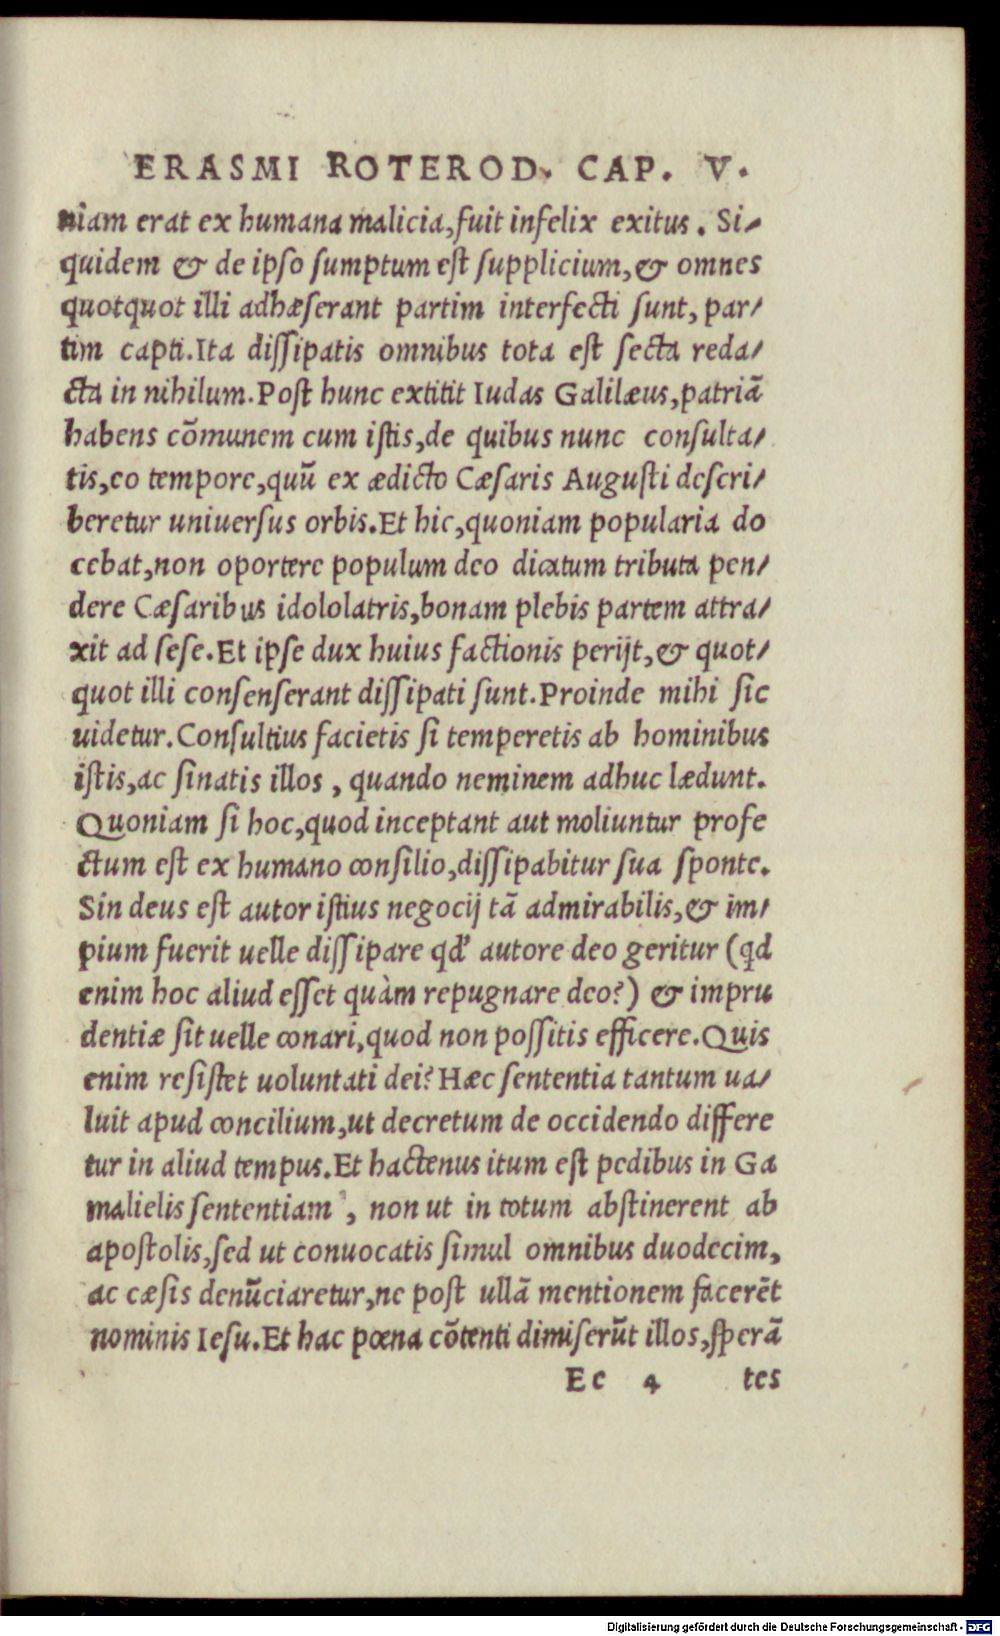 ERASMI ROTEROD. CAP. V.
niam erat ex humana malicia, fuit infelix exitus. Si-
quidem & de ipso sumptum est supplicium, & omnes
quotquot illi adhæserant partim interfecti sunt, par-
tim capti. Ita dissipatis omnibus tota est secta reda-
cta in nihilum. Post hunc extitit Iudas Galilæus, patriã
habens cõmunem cum istis, de quibus nunc consulta-
tis, eo tempore, quũ ex ædicto Cæsaris Augusti descri-
beretur uniuersus orbis. Et hic, quoniam popularia do
cebat, non oportere populum deo dicatum tributa pen-
dere Cæsaribus idololatris, bonam plebis partem attra-
xit ad sese. Et ipse dux huius factionis perijt, & quot-
quot illi consenserant dissipati sunt. Proinde mihi sic
uidetur. Consultius facietis si temperetis ab hominibus
istis, ac sinatis illos, quando neminem adhuc lædunt.
Quoniam si hoc, quod inceptant aut moliuntur profe
ctum est ex humano consilio, dissipabitur sua sponte.
Sin deus est autor istius negocij tã admirabilis, & im-
pium fuerit uelle dissipare qd' autore deo geritur (qd
enim hoc aliud esset quàm repugnare deo?) & impru
dentiæ sit uelle conari, quod non possitis efficere. Quis
enim resistet uoluntati dei? Hæc sententia tantum ua-
luit apud concilium, ut decretum de occidendo differe
tur in aliud tempus. Et hactenus itum est pedibus in Ga
malielis sententiam, non ut in totum abstinerent ab
apostolis, sed ut conuocatis simul omnibus duodecim,
ac cæsis denũciaretur, ne post ullã mentionem facerẽt
nominis Iesu. Et hac pœna cõtenti dimiserũt illos, sperã
Ee 4 tes
Digitalisierung gefördert durch die Deutsche Forschungsgemeinschaft - DFG